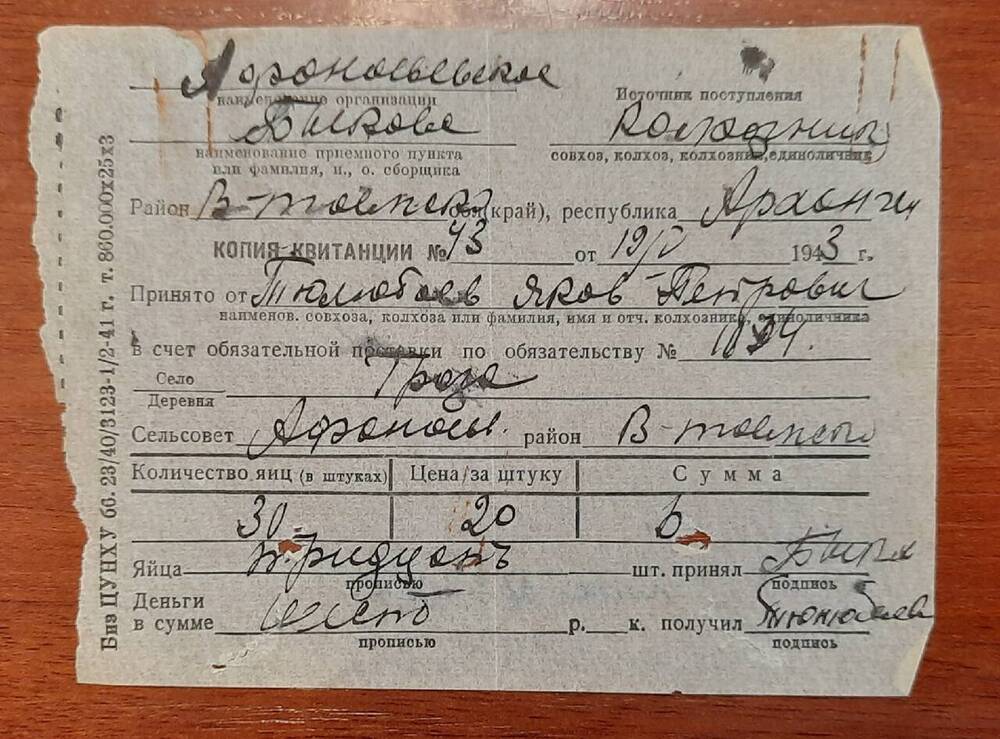 Афонасьевское
наименование организации
Источник поступления
Быкова
колхозниц
наименование приемного пункта
или фамилия, и., о. сборщика
совхоз, колхоз, колхозник, единоличник
Район В-тоемск обл(край), республика Арханг
КОПИЯ КВИТАНЦИИ № 43 от 19/V 1943 г.
Принято от Тюлюбаев Яков Петрович
наименов. совхоза, колхоза или фамилия, имя и отч. колхозника, единоличника
в счет обязательной поставки по обязательству №
Село
Деревня
Сельсовет Афонась. район В-тоемск
Количество яиц (в штуках) Цена за штуку Сумма
30 20 6
Яйца тридцать шт. принял Бык
прописью подпись
Деньги
в сумме шесть р. к. получил Тюлюбаев
прописью подпись
Биз ЦУНХУ бб. 23/40/3123-1/2-41 г. т. 860.000х25х3